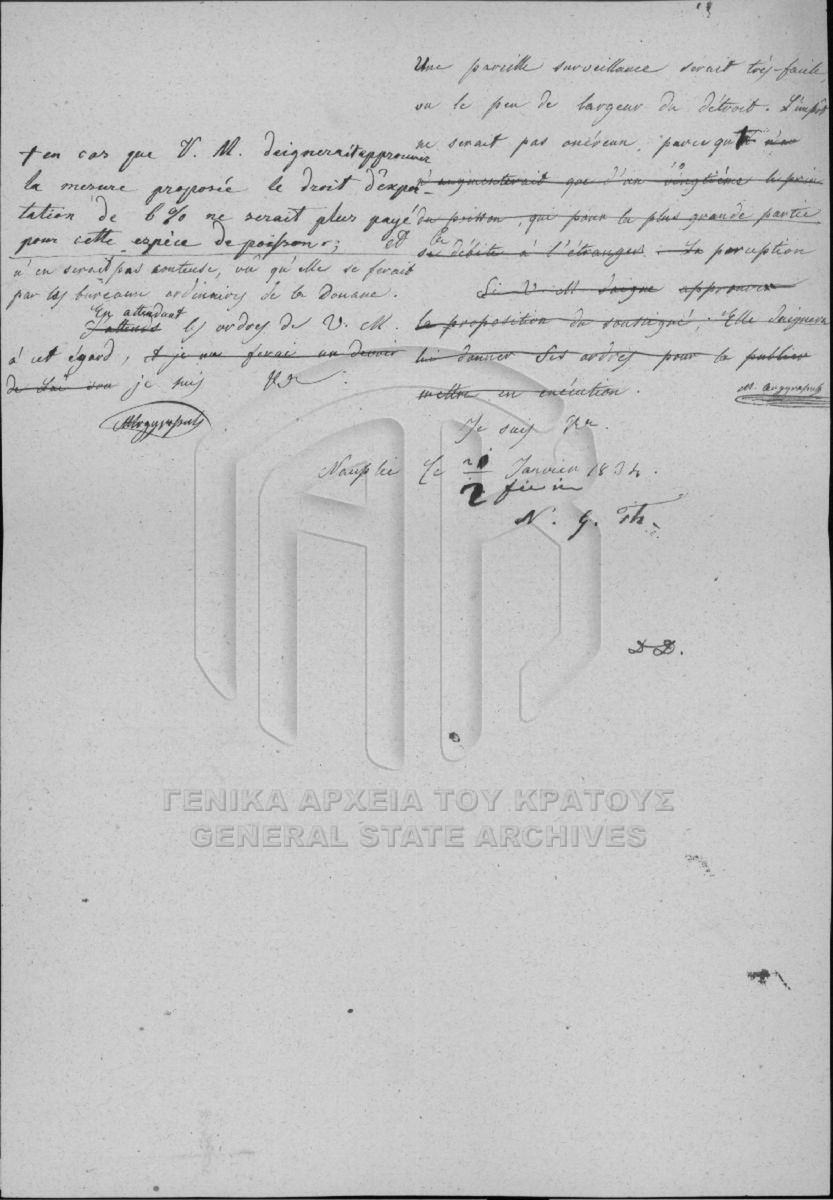 Une pareille surveillance serait très-facile,
vu le peu de largeur du détroit. L'impôt
ne serait pas onéreux, parce qu'il n'en
n'augmenterait que d'un vingtième le prix
du poisson, qui pour la plus grande partie
se débite à l'étranger. La perception
Si V. M. daigne approuver
la proposition du soussigné, Elle daignera
lui donner Ses ordres pour la publier
mettre en exécution.
M. Argyropoul
Je suis
Nauplie le 21 Janvier 1834.
2 février
N. G. Th.
D D.
+ en cas que V. M. daignerait approuver
la mesure proposée le droit d'expor-
tation de 6% ne serait plus payé
pour cette espèce de poisson;
n'en serait pas couteuse, vû qu'elle se ferait
par les bureaux ordinaires de la Douane.
En attendant
J'attends les ordres de V. M.
à cet égard, & je me ferai un devoir
de je suis
Argyropoul
ΓΕΝΙΚΑ ΑΡΧΕΙΑ ΤΟΥ ΚΡΑΤΟΥΣ
GENERAL STATE ARCHIVES